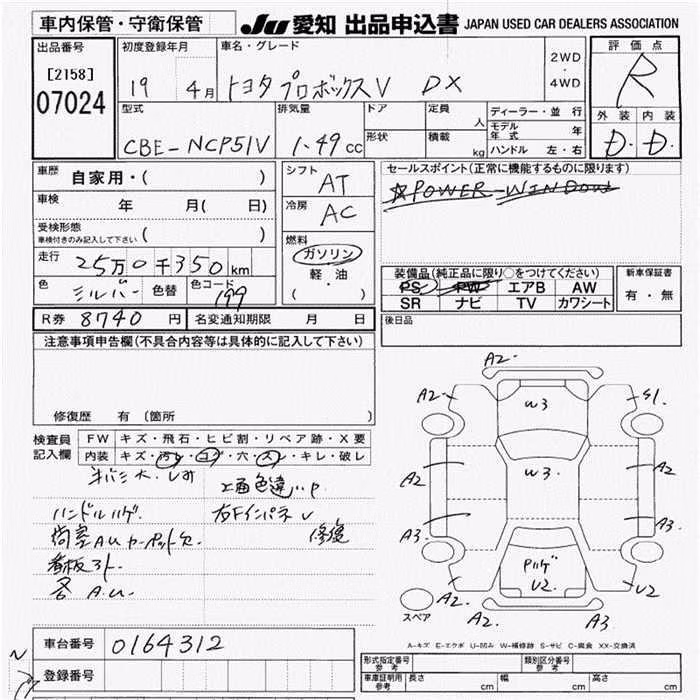 車内保管・守衛保管
JU 愛知 出品申込書 JAPAN USED CAR DEALERS ASSOCIATION
出品番号
[2158]
07024
初度登録年月
19 4月
車名・グレード
トヨタ プロボックスV DX
2WD
・
4WD
評価点
R
外装 内装
D・D・
型式
CBE-NCP51V
排気量
1.49cc
ドア
形状
定員
人
積載
kg
ディーラー・並 行
モデル年式 年
ハンドル 左・右
車歴 自家用・( )
車検 年 月( 日)
受検形態
車検付きのみ記入して下さい
( )
走行 25万0千350km
色 シルバー 色替 色コード 199
シフト
AT
冷房
AC
燃料
ガソリン
軽・油
( )
セールスポイント(正常に機能するものに限ります)
☆POWER-WINDOW
装備品(純正品に限り○をつけてください)
PS PW エアB AW
SR ナビ TV カワシート
新車保証書
有・無
R券 8740 円 名変通知期限 月 日
後日品
注意事項申告欄(不具合内容等は具体的に記入して下さい)
修復歴 有 〔箇所 〕
検査員
記入欄
FW キズ・飛石・ヒビ割・リペア跡・X要
内装 キズ・汚レ・コゲ・穴・スレ・キレ・破レ
ハンドルハゲ
工面色違いP
右Fインパネ V
修復
荷室AUカーペット欠
看板スト
各 A.U.
A2.
A2.
S1.
W3
W3.
A2
A2
A3.
A3.
Pハゲ
U2.
A2.
U2
A2.
A3.
スペア
A-キズ E-エクボ U-凹み W-補修跡 S-サビ C-腐食 XX-交換済
車台番号 0164312
登録番号
形式指定番号
参考
類別区分番号
参考
車庫証明用
参考
長さ cm 幅 cm 高さ cm